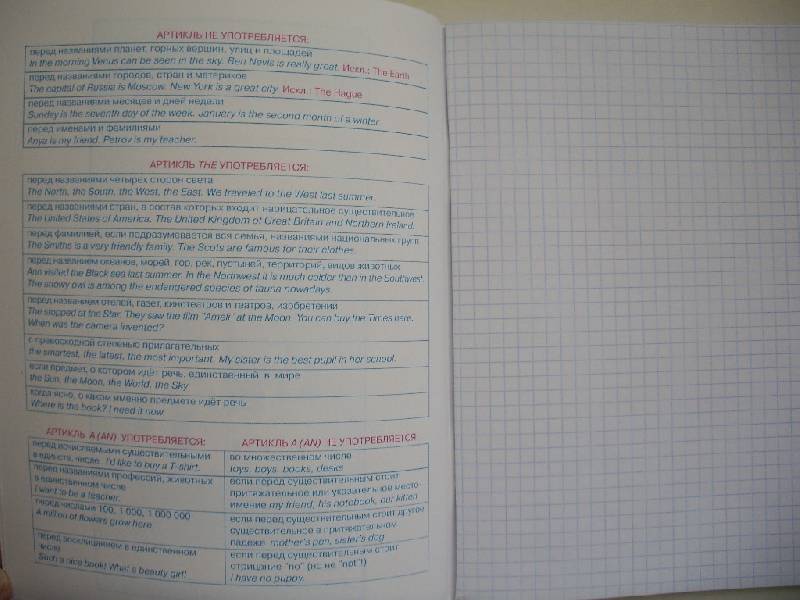 АРТИКЛЬ НЕ УПОТРЕБЛЯЕТСЯ:
перед названиями планет, горных вершин, улиц и площадей
In the morning Venus can be seen in the sky. Ben Nevis is really great. Искл.: The Earth
перед названиями городов, стран и материков
The capital of Russia is Moscow. New York is a great city. Искл.: The Hague
перед названиями месяцев и дней недели
Sunday is the seventh day of the week. January is the second month of a winter.
перед именами и фамилиями
Anya is my friend. Petrov is my teacher.
АРТИКЛЬ THE УПОТРЕБЛЯЕТСЯ:
перед названиями четырех сторон света
The North, the South, the West, the East. We traveled to the West last summer.
перед названиями стран, в состав которых входит нарицательное существительное
The United States of America. The United Kingdom of Great Britain and Northern Ireland.
перед фамилией, если подразумевается вся семья, названиями национальных групп
The Smiths is a very friendly family. The Scots are famous for their clothes.
перед названием океанов, морей, гор, рек, пустыней, территорий, видов животных
Ann visited the Black sea last summer. In the Northwest it is much colder then in the Southwest.
The snowy owl is among the endangered species of fauna nowadays.
перед названием отелей, газет, кинотеатров и театров, изобретений
The stopped at the Star. They saw the film "Ameli" at the Moon. You can buy the Times here.
When was the camera invented?
с превосходной степенью прилагательных
the smartest, the latest, the most important. My sister is the best pupil in her school.
если предмет, о котором идёт речь, единственный в мире
the Sun, the Moon, the World, the Sky
когда ясно, о каком именно предмете идёт речь
Where is the book? I need it now.
АРТИКЛЬ A (AN) УПОТРЕБЛЯЕТСЯ:
перед исчисляемыми существительными
в единств. числе I'd like to buy a T-shirt.
перед названиями профессий, животных
в единственном числе
I want to be a teacher.
перед числами 100, 1 000, 1 000 000
A million of flowers grow here
перед восклицанием в единственном
числе
Such a nice book! What a beauty girl!
АРТИКЛЬ A (AN) НЕ УПОТРЕБЛЯЕТСЯ
во множественном числе
toys, boys, books, desks
если перед существительным стоит
притяжательное или указательное место-
имение my friend, his notebook, our kitten
если перед существительным стоит другое
существительное в притяжательном
падеже mother's pen, sister's dog
если перед существительным стоит
отрицание "no" (но не "not"!)
I have no puppy.